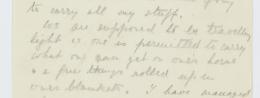 to carry all my stuff.
We are supposed to be travelling
light & one is permitted to carry
what one can get on ones horse
& a few things rolled up in
ones blankets. I have managed